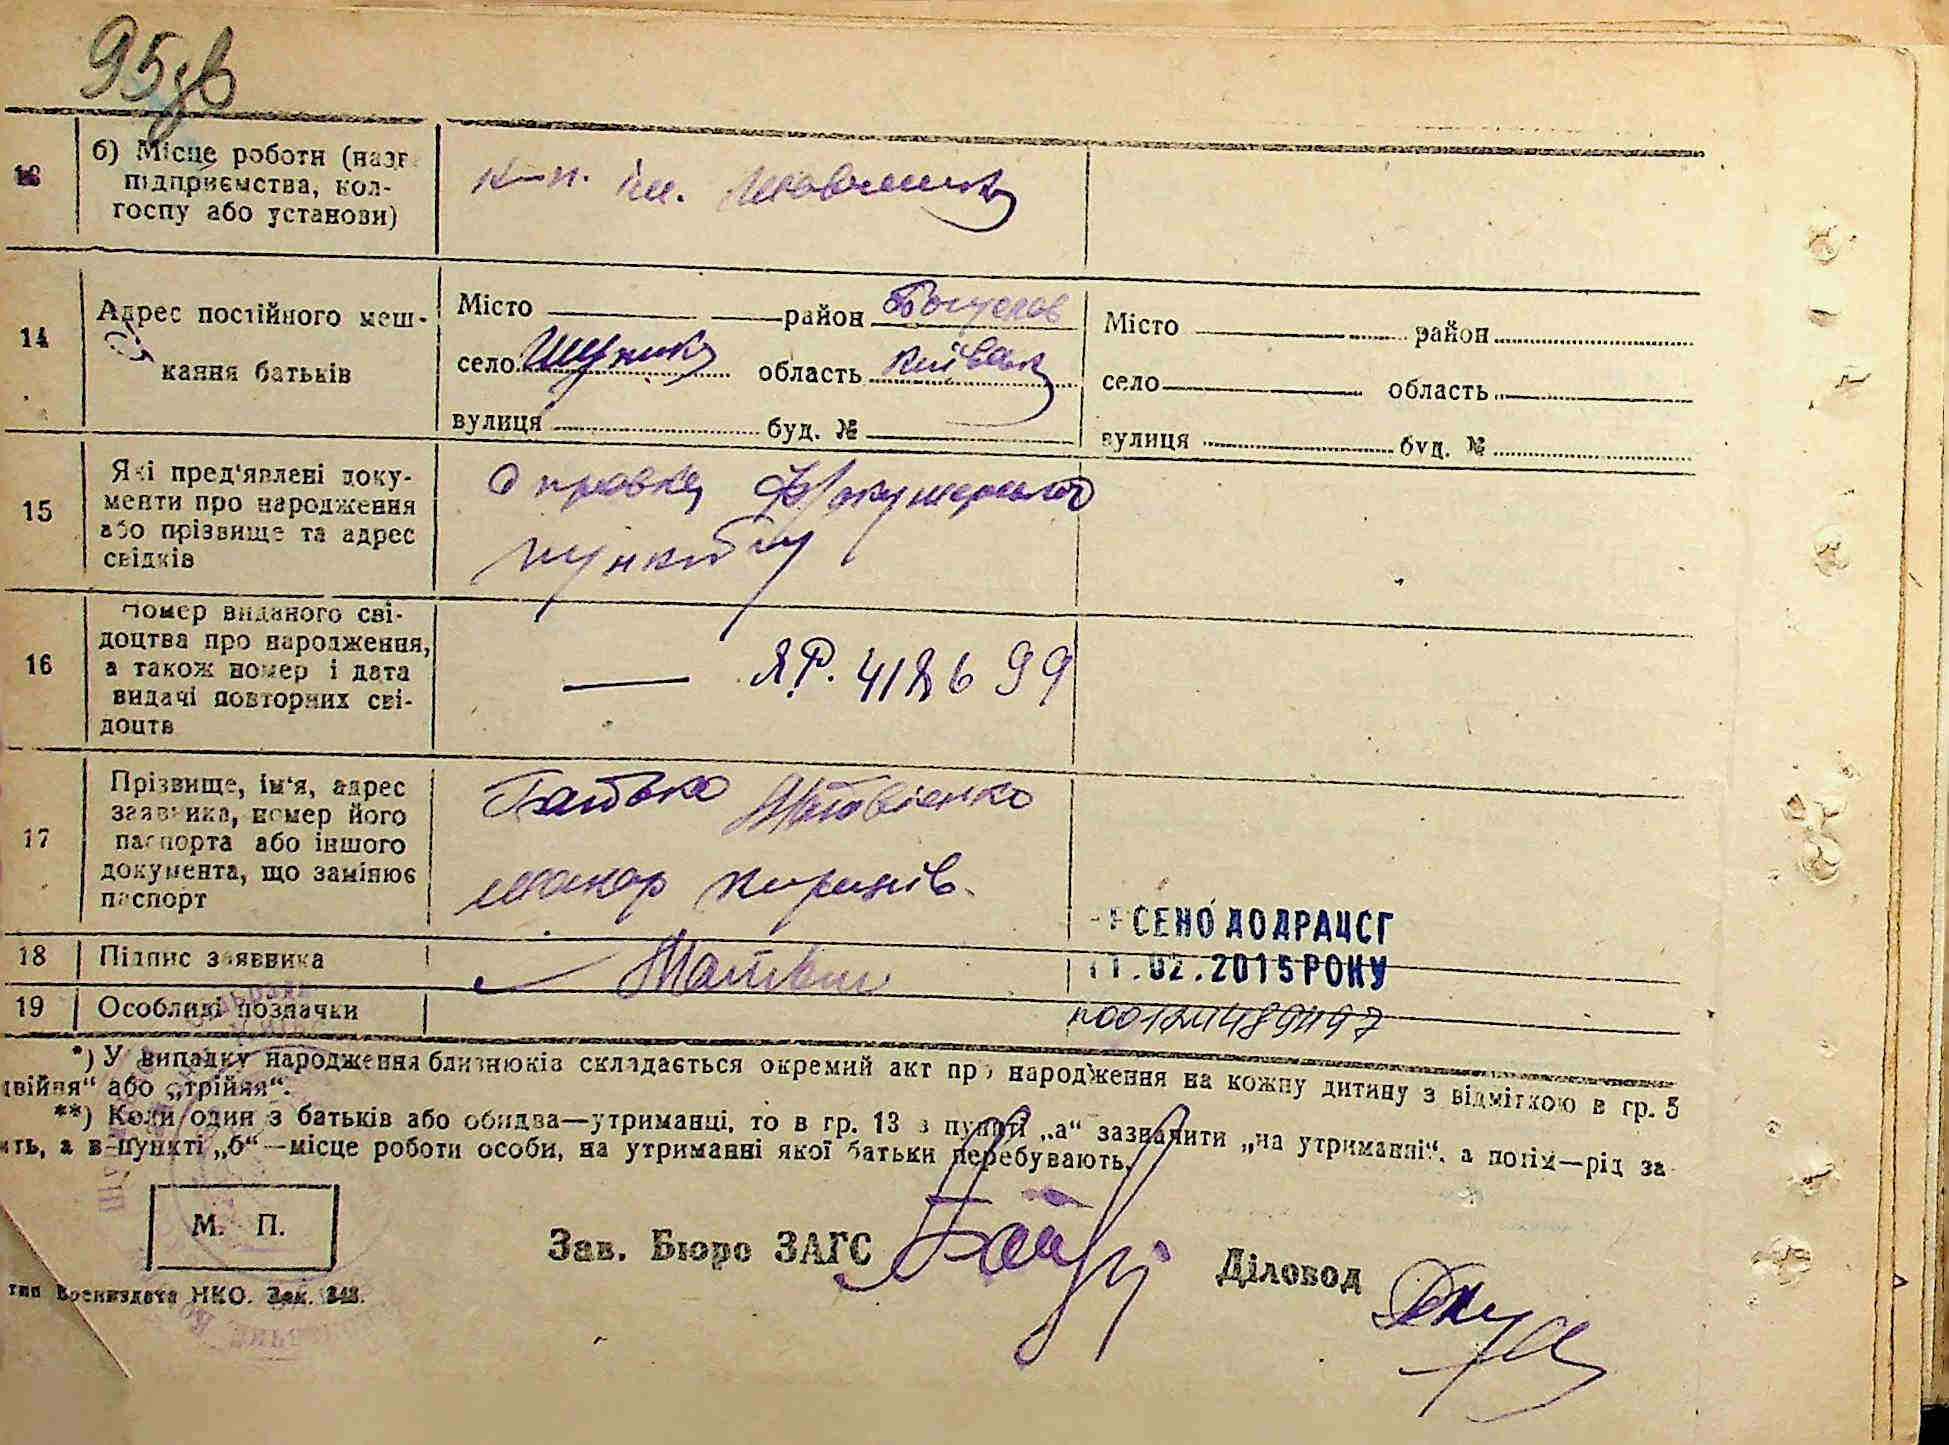 95зв
13
б) Місце роботи (назв
підприємства, кол-
госпу або установи)
к-п. ім.
14
Адрес постійного меш-
кання батьків
Місто район Богуслав
село область Київськ
вулиця буд. №
Місто район
село область
вулиця буд. №
15
Які пред'явлені доку-
менти про народження
або прізвище та адрес
свідків
Справка Ф/Акушерського
пункту
16
Номер виданого сві-
доцтва про народження,
а також номер і дата
видачі повторних сві-
доцтв
— ЯР. 418699
17
Прізвище, ім'я, адрес
заявника, номер його
паспорта або іншого
документа, що замінює
паспорт
Батько Матвієнко
Макар
18 Підпис заявника
19 Особливі позначки
ЕСЕНО ДО ДРАЦСГ
11.02.2015 РОКУ
*) У випадку народження близнюків складається окремий акт про народження на кожну дитину з відміткою в гр. 5
двійня“ або „трійня“.
**) Коли один з батьків або обидва—утриманці, то в гр. 13 в пункті „а“ зазначити „на утриманні“, а потім—рід за
ить, а в пункті „б“—місце роботи особи, на утриманні якої батьки перебувають.
М. П.
Зав. Бюро ЗАГС
Діловод
тип Воениздата НКО. Зак. 348.